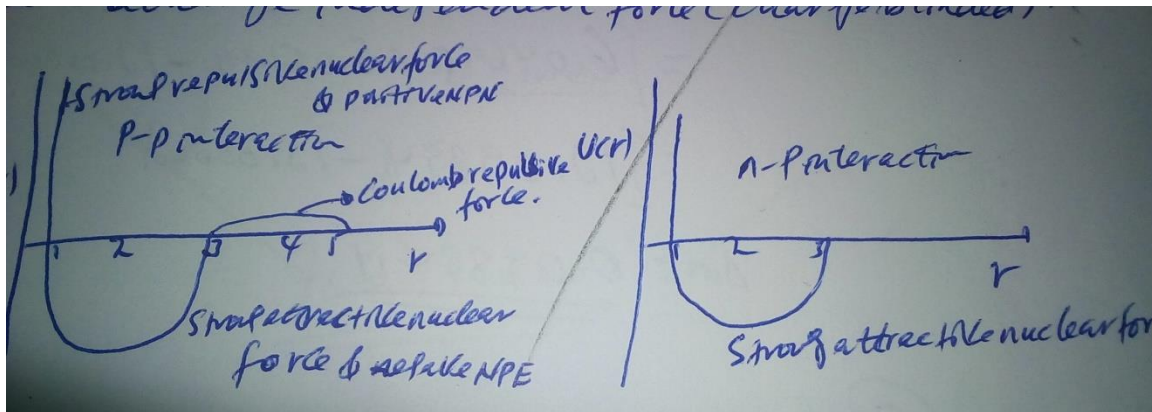 independent force (charge blinded)
Strong repulsive nuclear force
& positive NPN
P-P interaction
Coulomb repulsive
force.
1 2 3 4 5 r
Strong attractive nuclear
force & negative NPE
U(r)
n-P interaction
1 2 3
r
Strong attractive nuclear for